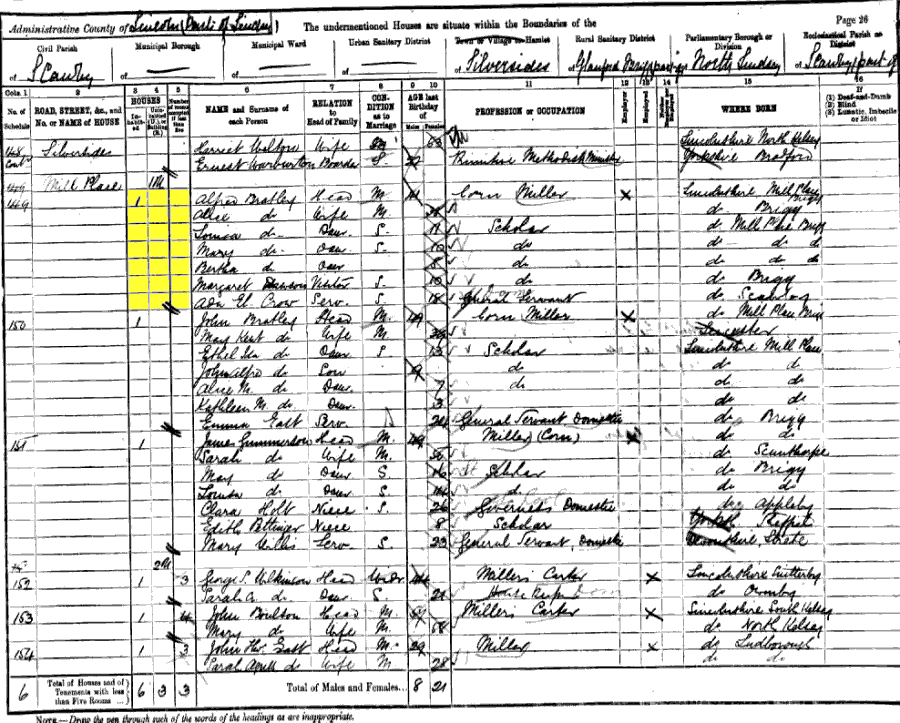 Administrative County of Lincoln (Parts of Lindsey) The undermentioned Houses are situate within the Boundaries of the Page 26
Civil Parish Municipal Borough Municipal Ward Urban Sanitary District Town or Village or Hamlet Rural Sanitary District Parliamentary Borough or Division Ecclesiastical Parish or District
of Scawby of of of of Silversides of Glanford Brigg of North Lindsey of Scawby part of
Cols. 1 2 3 4 5 6 7 8 9 10 11 12 13 14 15 16
No. of Schedule ROAD, STREET, &c., and No. or NAME of HOUSE HOUSES Inhabited Uninhabited (U.), or Building (B.) Number of rooms occupied if less than five NAME and Surname of each Person RELATION to Head of Family CONDITION as to Marriage AGE last Birthday of Males Females PROFESSION or OCCUPATION Employer Employed Neither WHERE BORN If (1) Deaf-and-Dumb (2) Blind (3) Lunatic, Imbecile or Idiot
148 Silversides Harriet Walton Wife 63 Lincolnshire North Kelsey
Contd Ernest Warburton Boarder S 22 Primitive Methodist Minister Yorkshire Bradford
149 Mill Place 1U
149 1 Alfred Bratley Head M 41 Corn Miller x Lincolnshire Mill Place Brigg
Alice do Wife M do Brigg
Louisa do Daur S 11 Scholar do Mill Place Brigg
Mary do Daur S 10 do do do do
Bertha do Daur 8 do do do do
Margaret Visitor S 10 do do Brigg
Ada El. Crow Serv S 18 General Servant do Scawby
150 1 John Bratley Head M 49 Corn Miller x do Mill Place Brigg
Mary Kent do Wife M Leicester
Ethel Ida do Daur S 13 Scholar Lincolnshire Mill Place
John Alfd do Son 9 do do do
Alice M. do Daur 7 do do do
Kathleen M. do Daur 3 do do
Emma East Serv 24 General Servant, Domestic do Brigg
151 1 James Gummerson Head M. 49 Miller (Corn) x do do
Sarah do Wife M. do Scunthorpe
May do Daur S 16 Scholar do Brigg
Louisa do Daur S 14 do do do
Clara Holt Niece S 26 Governess Domestic do Appleby
Edith Niece 8 Scholar York
Mary Willis Serv S 23 General Servant, Domestic
2U
152 1 3 George S. Wilkinson Head Widr Millers Carter x Lincolnshire
Sarah A. do Daur S 21 do
153 1 4 John Boulton Head M 69 Millers Carter x Lincolnshire South Kelsey
Mary do Wife M 68 do North Kelsey
154 1 3 John Hy. Head M 29 Miller x do Ludborough
Sarah do Wife M 28 do do
6 Total of Houses and of Tenements with less than Five Rooms ... 6 3 3 Total of Males and Females... 8 21
NOTE.—Draw the pen through such of the words of the headings as are inappropriate.